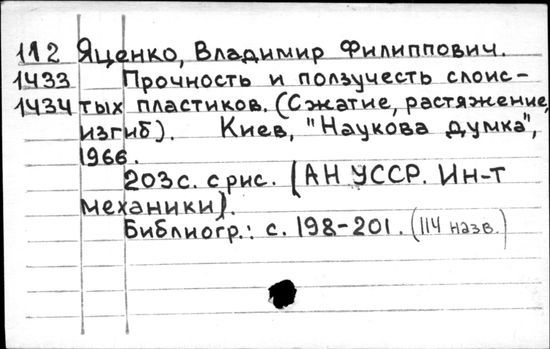 112 Яценко, Владимир Филиппович.
1433 Прочность и ползучесть слоис-
1434 тых пластиков. (Сжатие, растяжение,
изгиб). Киев, "Наукова думка",
1966.
203 с. с рис. (АН УССР. Ин-т
механики).
Библиогр.: с. 198-201. (114 назв.)